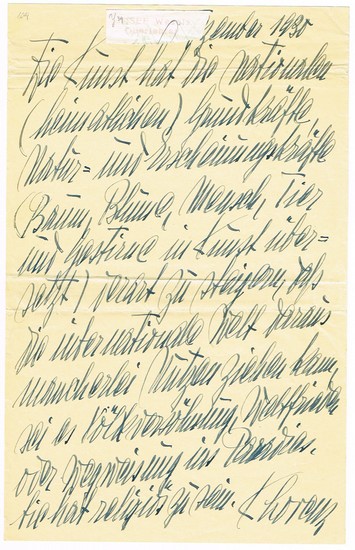 ember 1930
Die Kunst hat die nationalen
(heimatlichen) Grundkräfte,
Natur= und Erscheinungskräfte
Baum, Blume, Mensch, Tier
und Gestirne in Kunst über=
setzt) derart zu steigern, daß
die internationale Welt daraus
mancherlei Nutzen ziehen kann,
sei es Völkerversöhnung, Weltfrieden
oder Wegweisung ins Paradies.
Sie hat religiös zu sein.